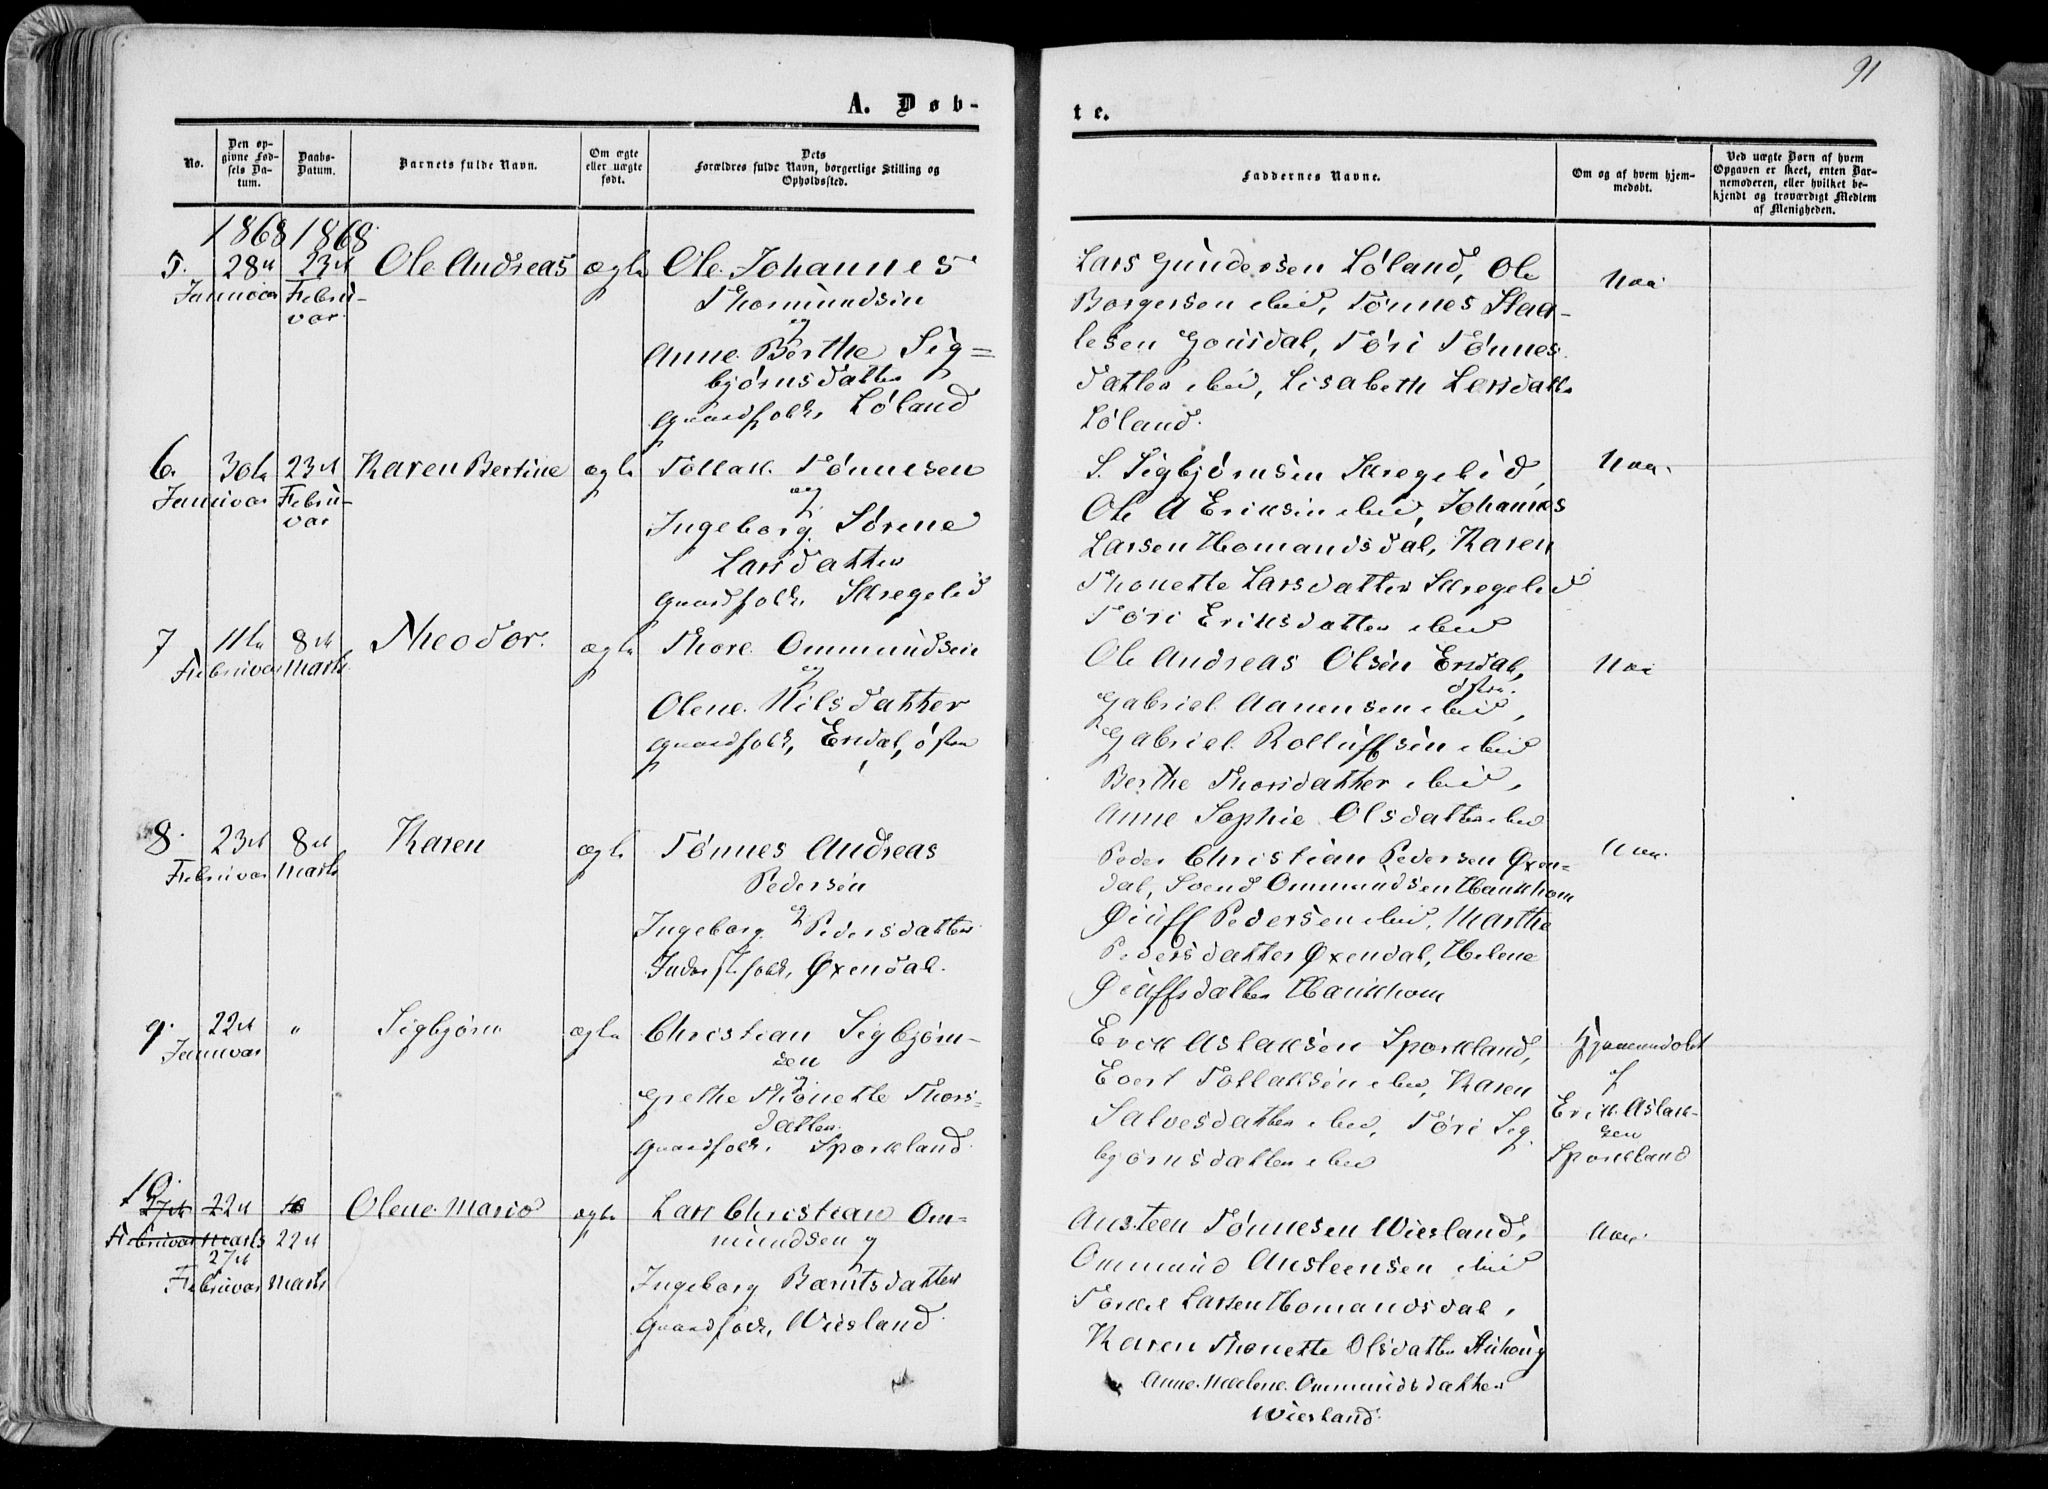 91
A. Døb-
te.
No.
Den op-
givne Fød-
sels Da-
tum.
Daabs-
Datum.
Barnets fulde Navn.
Om ægte
eller uægte
født.
Dets
Forældres fulde Navn, borgerlige Stilling og
Opholdssted.
Faddernes Navne.
Om og af hvem hjem-
medøbt.
Ved uægte Børn af hvem
Opgaven er skeet, enten Bar-
nemoderen, eller hvilket be-
kjendt og troværdigt Medlem
af Menigheden.
1868 1868
5. 28de Januvar
23de Februvar
Ole Andreas
ægte
Ole Johannes
Thormundsen
og
Anne Berthe Sig=
bjørnsdatter
Gaardfolk, Løland
Lars Gundersen Løland, Ole
Borgersen ibid, Tønnes Staa-
lesen, Töri Tønnes
datter ibid, Lisabeth Larsdatter
Løland.
Nei
6. 30te Januvar
23de Februvar
Karen Bertine
ægte
Tollak Tønnesen
og
Ingeborg Sørine
Larsdatter
Gaardfolk, Skregelid
S. Sigbjørnsen Skregelid,
Ole A Eriksen ibid, Johannes
Larsen Homandsdal, Karen
Thonette Larsdatter Skregelid
Töri Eriksdatter ibid
Nei
7 11te Februvar
8de Marts
Theodor.
ægte
Thore Ommundsen
og
Olene Nilsdatter
Gaardfolk, Ersdal, østre
Ole Andreas Olsen Ersdal,
østre.
Gabriel Aanensen ibid,
Gabriel Rolluffsen ibid
Berthe Thorsdatter ibid,
Anne Sophie Olsdatter ibid
Nei
8. 23de Februvar
8de Marts
Karen
ægte
Tønnes Andreas
Pedersen
og
Ingeborg Pedersdatter
Inderstfolk, Øxendal.
Peder Christian Pedersen Øxen-
dal, Svend Ommundsen Haukhom
Øiuff Pedersen ibid, Marthe
Pedersdatter Øxendal, Helene
Øiuffsdatter Haukhom
Nei
9. 22de Januvar
"
Sigbjørn
ægte
Christian Sigbjørn-
sen
og
Grethe Thonette Thors=
datter.
Gaardfolk, Sporkland.
Erik Aslaksen Sporkland,
Evert Tollaksen ibid, Karen
Salvesdatter ibid, Töri Sig
bjørnsdatter ibid
Hjemmedøbt
af
Erik Aslak-
sen
Sporkland
10.
27de 22de
Februvar Marts 22de
27de
Februvar Marts
Olene Marie
ægte
Lars Christian Om-
mundsen og
Ingeborg Berntsdatter
Gaardfolk, Wiesland
Austeen Tønnesen Wiesland,
Ommund Austeensen ibid
Torkel Larsen Homandsdal,
Karen Thonette Olsdatter
Anne Malene Ommundsdatter
Wiesland.
Nei